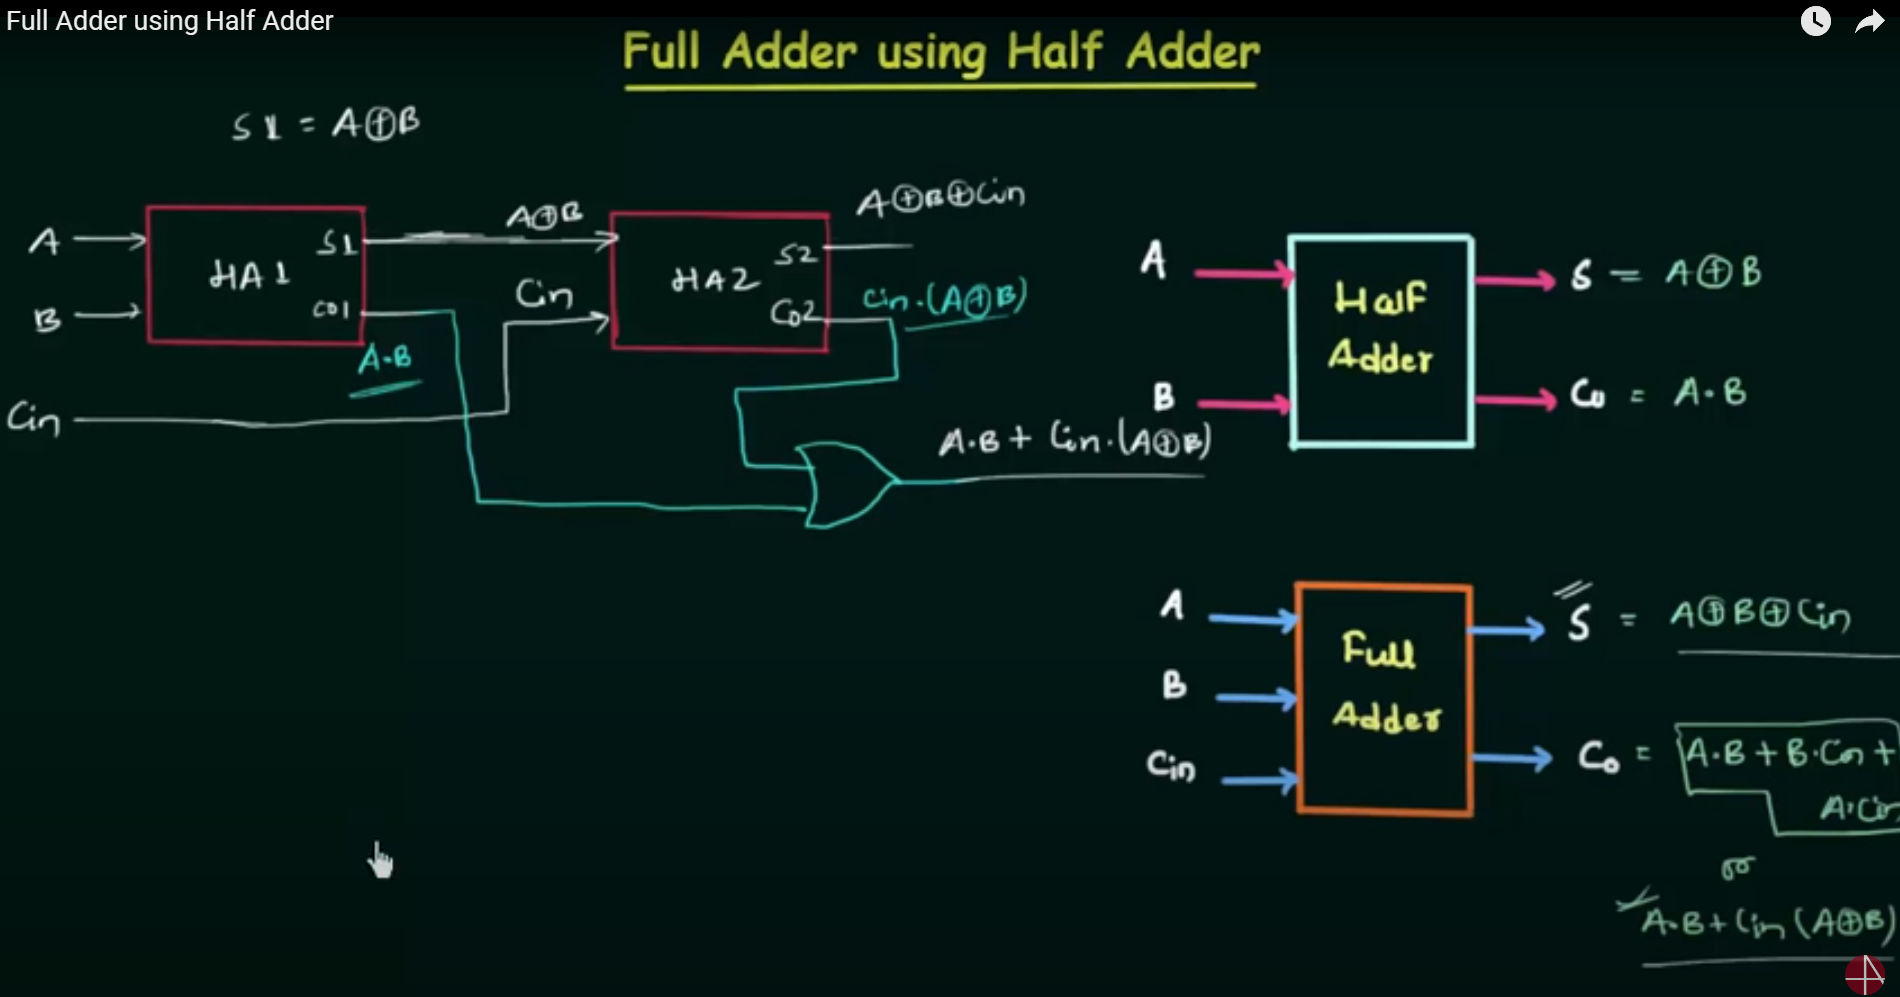 Full Adder using Half Adder
Full Adder using Half Adder
S1 = A⊕B
A
B
Cin
HA1
S1
CO1
A·B
A⊕B
Cin
HA2
S2
Co2
A⊕B⊕Cin
Cin·(A⊕B)
A·B + Cin·(A⊕B)
A
B
Half
Adder
S = A⊕B
Co = A·B
A
B
Cin
Full
Adder
S = A⊕B⊕Cin
Co = A·B + B·Cin +
A·Cin
or
A·B + Cin (A⊕B)